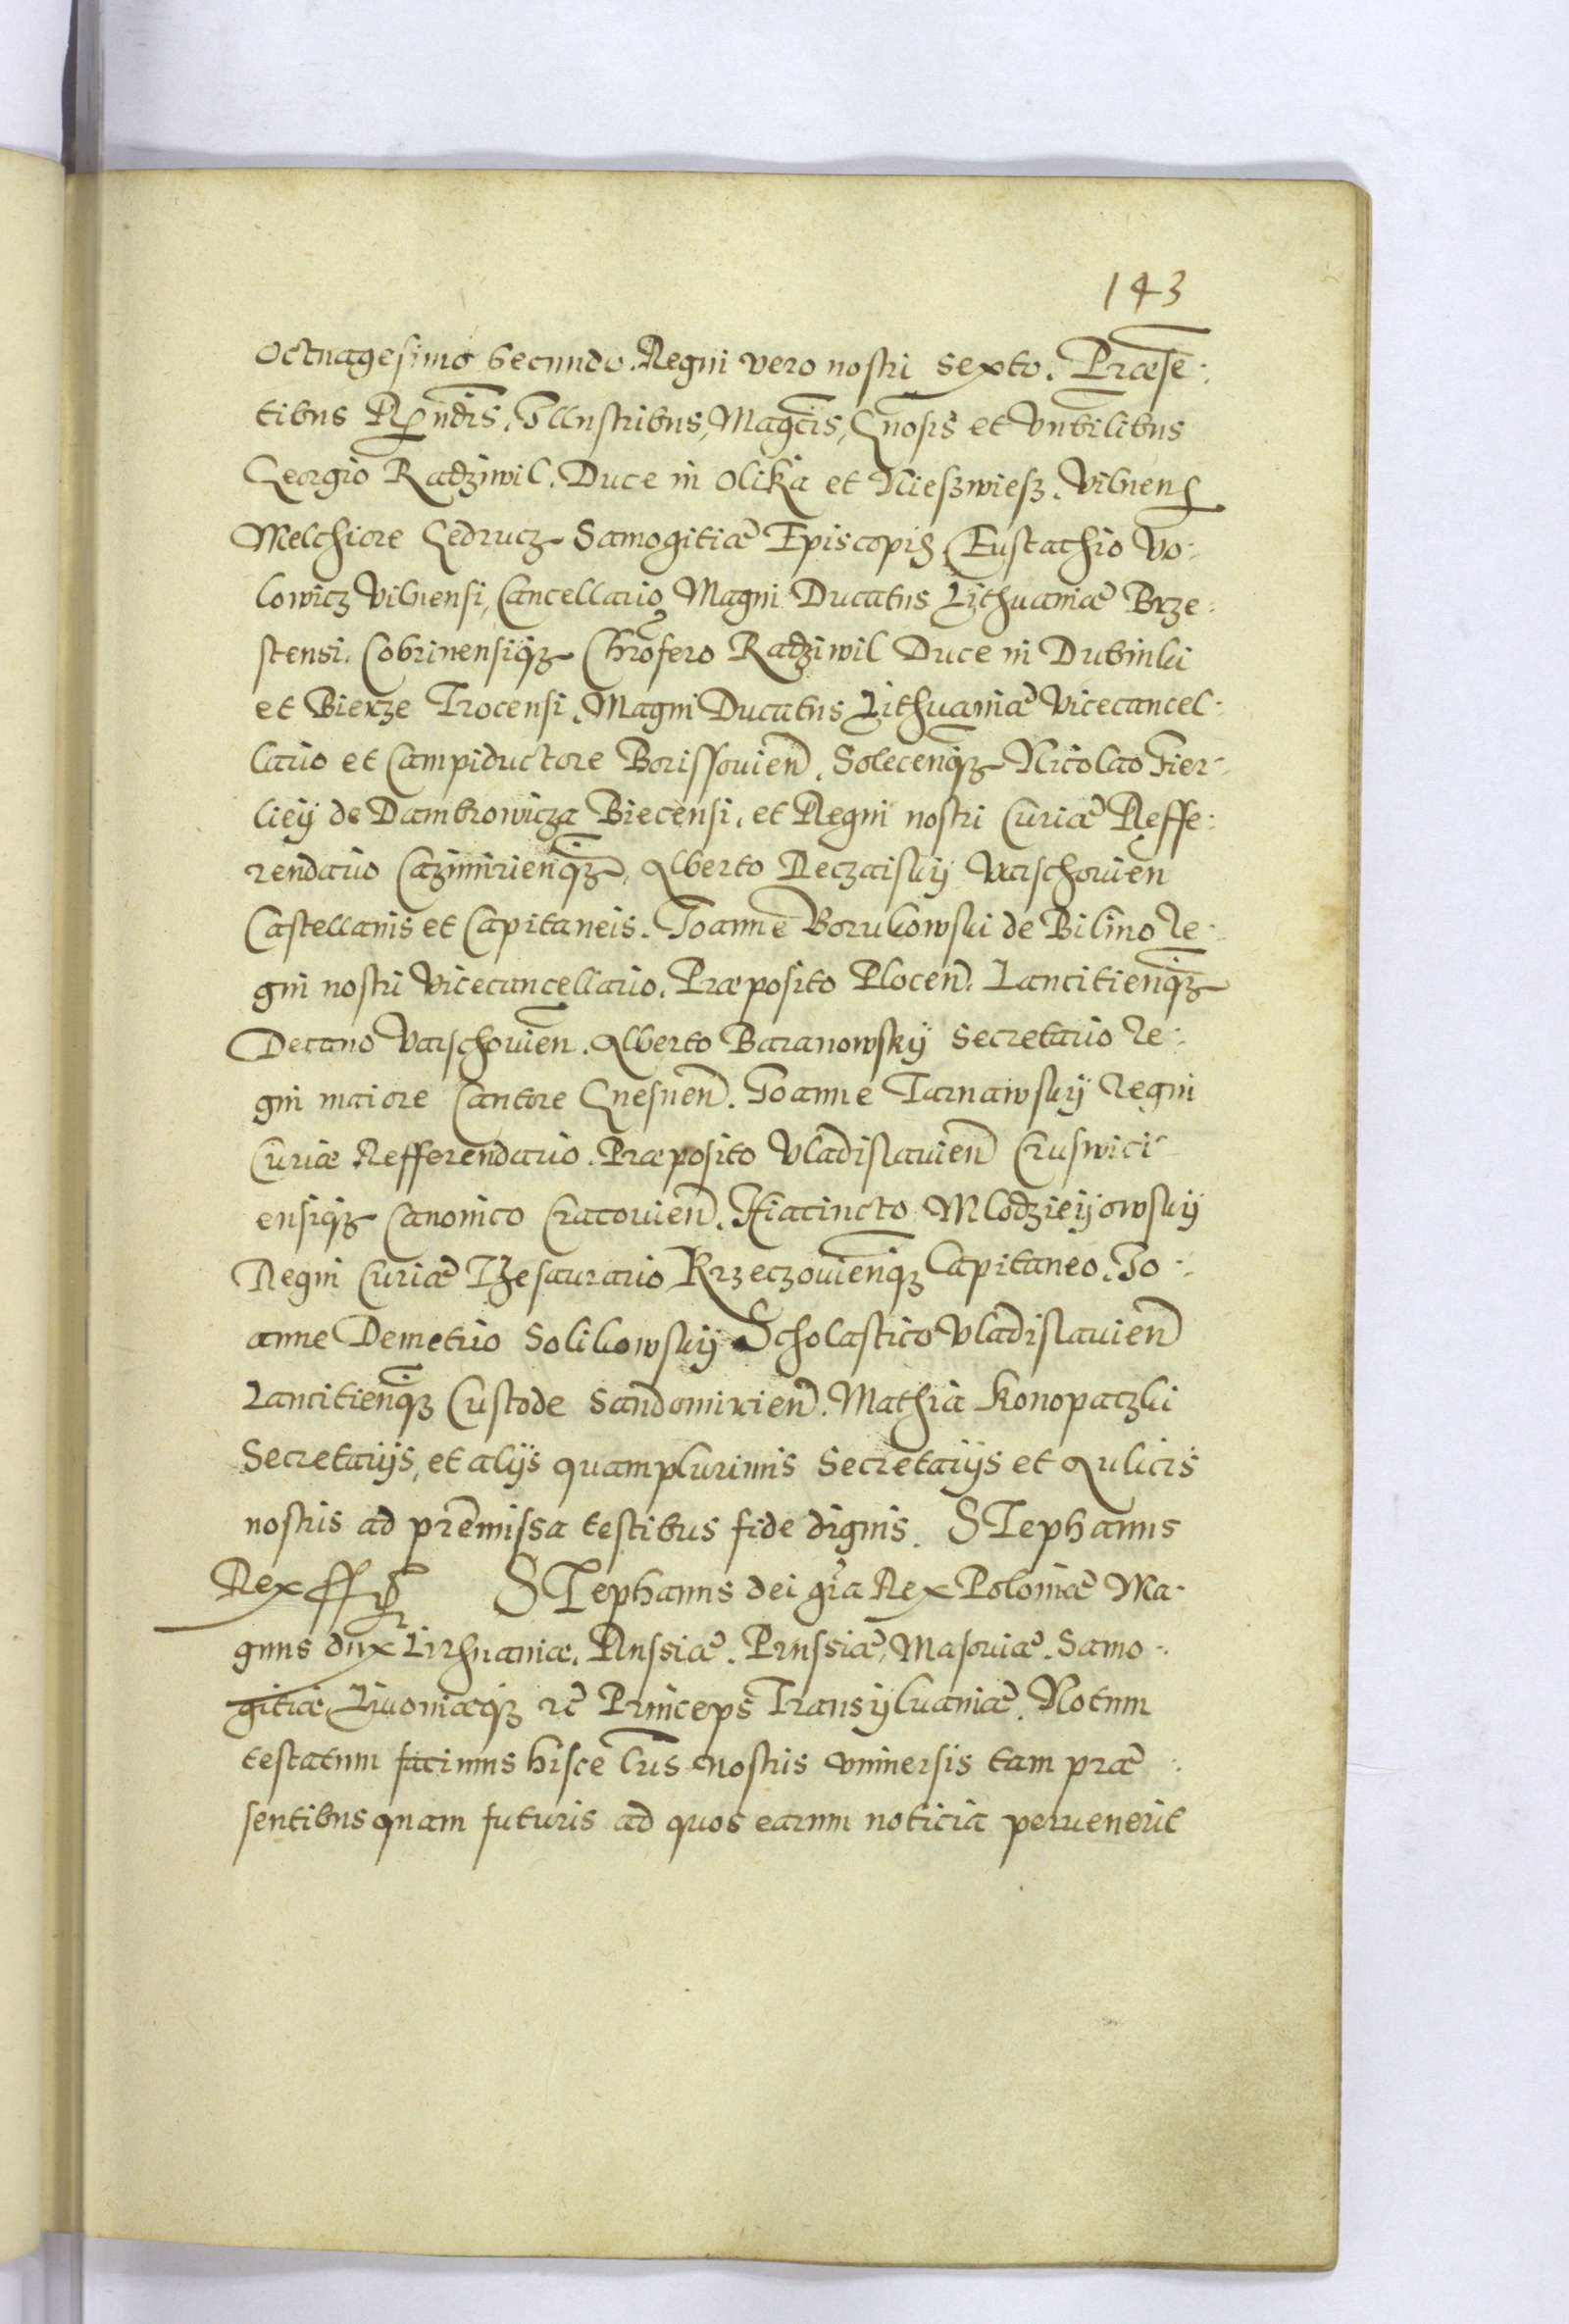 143
octuagesimo secundo. Regni vero nostri sexto. Præsē:
tibus Rndis. Illustribus, Magcis, Gnosis et Vnbilibus
Georgio Radziwil. Duce in Olika et Niesswiesz. Vilnens
Melchiore Gedrucz Samogitiæ Episcopis Eustachio Vo:
lowicz Vilnensi, Cancellario Magni Ducatus Lithuaniæ Brze:
stensi. Cobrinensiqȝ Chrofero Radziwil Duce in Dubinki
et Bierze Trocensi. Magni Ducatus Lithuaniæ Vicecancel:
lario et Campiductore Borissouien̄. Solecenqȝ Nicolao Fier:
lieÿ de Dambrowicza Biecensi. et Regni nostri Curiæ Reffe:
rendario Cazimirienqȝ, Alberto Reczaiskÿ Varschouien̄
Castellanis et Capitaneis. Joanne Borukowski de Bilino Re:
gni nostri Vicecancellario. Præposito Plocen̄. Lancitienqȝ
Decano Varschouien̄. Alberto Baranowskÿ Secretario Re:
gni maiore Cantore Gnesnen̄. Joanne Tarnawskÿ Regni
Curiæ Refferendario. Præposito Vladislauien̄ Cruswici:
ensiqȝ Canonico Cracouien̄. Hiacincto Mlodzieÿowskÿ
Regni Curiæ Thesaurario Krzeczouienqȝ Capitaneo. Jo:
anne Demetrio Solikowskÿ Scholastico Vladislauien̄
Lancitienqȝ Custode Sandomirien̄. Mathia Konopaczki
Secretarijs, et alijs quamplurimis Secretarijs et Aulicis
nostris ad prēmissa testibus fide dignis. STephanus
Rex STephanus dei grā Rex Poloniæ Ma:
gnus dux Lithuaniæ. Russiæ. Prussiæ, Masouiæ. Samo:
gitiæ, Liuoniæqȝ ꝛc Princeps Transÿluaniæ. Notum
testatum facimus hisce lrīs nostris vniuersis tam præ:
sentibus quam futuris ad quos earum noticia peruenerit